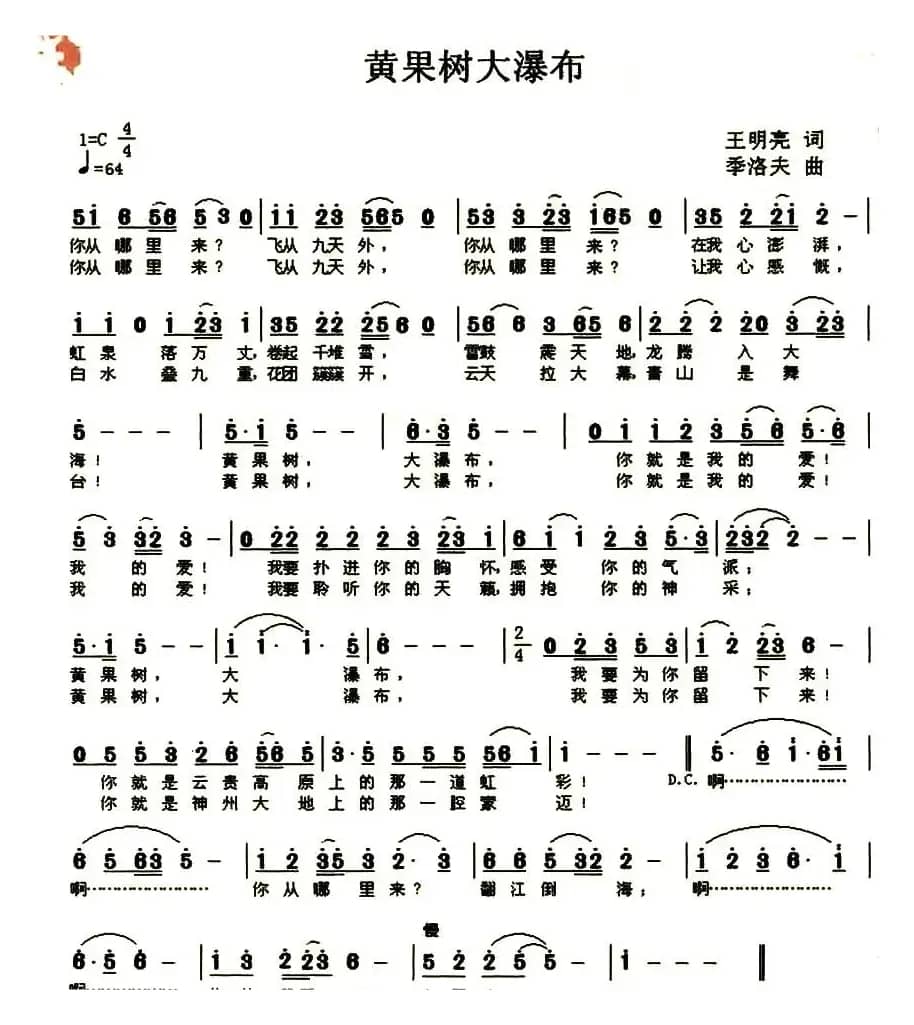 黄果树大瀑布
1=C 4/4
♩=64
王明亮 词
季洛夫 曲
你从 哪 里 来? 飞从 九天 外, 你从 哪 里 来? 在我 心 澎 湃,
你从 哪 里 来? 飞从 九天 外, 你从 哪 里 来? 让我 心 感 慨,
虹 泉 落 万 丈, 卷起 千堆 雪, 雷鼓 震 天 地, 龙 腾 入 大
白 水 叠 九 重, 花团 簇簇 开, 云天 拉 大 幕, 青 山 是 舞
海! 黄 果 树, 大 瀑 布, 你 就 是 我 的 爱!
台! 黄 果 树, 大 瀑 布, 你 就 是 我 的 爱!
我 的 爱! 我要 扑 进 你 的 胸 怀, 感 受 你 的 气 派;
我 的 爱! 我要 聆 听 你 的 天 籁, 拥 抱 你 的 神 采;
黄 果 树, 大 瀑 布, 我 要 为 你 留 下 来!
黄 果 树, 大 瀑 布, 我 要 为 你 留 下 来!
你 就 是 云 贵 高 原 上 的 那 一 道 虹 彩! D.C. 啊
你 就 是 神 州 大 地 上 的 那 一 腔 豪 迈!
啊 你 从 哪 里 来? 翻 江 倒 海; 啊
慢
啊